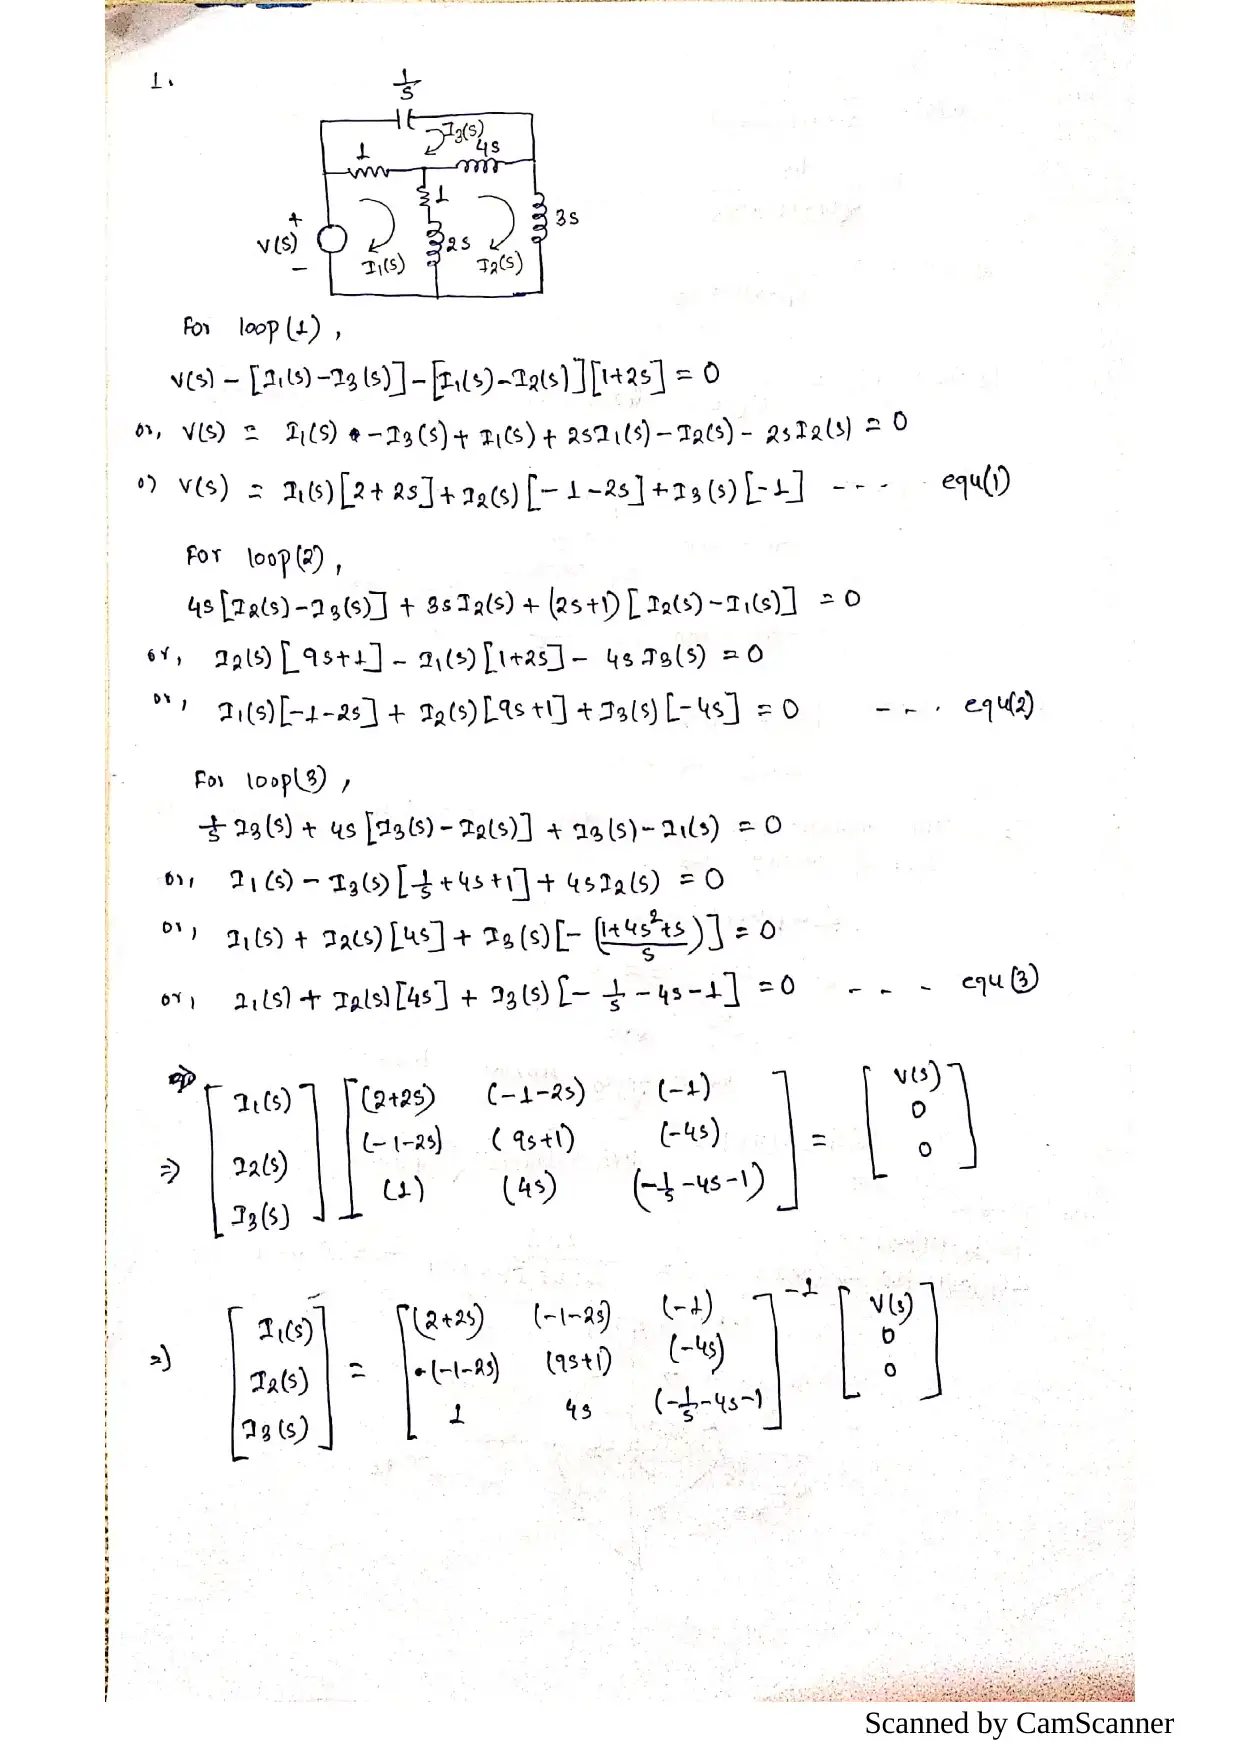 1.
1/s
I3(s)
1
4s
1
+
V(s)
-
2s
3s
I1(s)
I2(s)
For loop (1) ,
V(s) - [I1(s) - I3(s)] - [I1(s) - I2(s)][1+2s] = 0
or, V(s) = I1(s) - I3(s) + I1(s) + 2sI1(s) - I2(s) - 2sI2(s) = 0
or V(s) = I1(s)[2+2s] + I2(s)[-1-2s] + I3(s)[-1] --- equ(1)
For loop(2) ,
4s[I2(s) - I3(s)] + 3sI2(s) + (2s+1)[I2(s) - I1(s)] = 0
or, I2(s)[9s+1] - I1(s)[1+2s] - 4sI3(s) = 0
or, I1(s)[-1-2s] + I2(s)[9s+1] + I3(s)[-4s] = 0 --- equ(2)
For loop(3) ,
1/s I3(s) + 4s[I3(s) - I2(s)] + I3(s) - I1(s) = 0
or, I1(s) - I3(s)[1/s + 4s + 1] + 4sI2(s) = 0
or, I1(s) + I2(s)[4s] + I3(s)[-(1+4s²+s / s)] = 0
or, I1(s) + I2(s)[4s] + I3(s)[-1/s - 4s - 1] = 0 --- equ(3)
I1(s) (2+2s) (-1-2s) (-1) V(s)
(-1-2s) (9s+1) (-4s) = 0
⇒ I2(s) (1) (4s) (-1/s-4s-1) 0
I3(s)
I1(s) (2+2s) (-1-2s) (-1) -1 V(s)
⇒ I2(s) = (-1-2s) (9s+1) (-4s) 0
I3(s) 1 4s (-1/s-4s-1) 0
Scanned by CamScanner